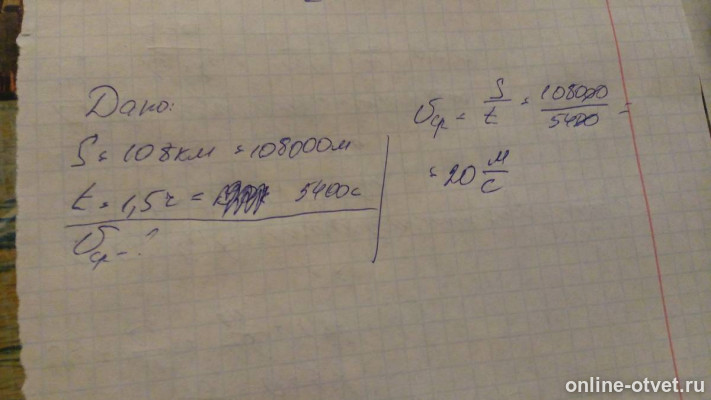 Дано:
S = 108 км = 108000 м
t = 1,5 ч = 5400 с
υср - ?
υср = S/t = 108000/5400 =
= 20 м/с
online-otvet.ru